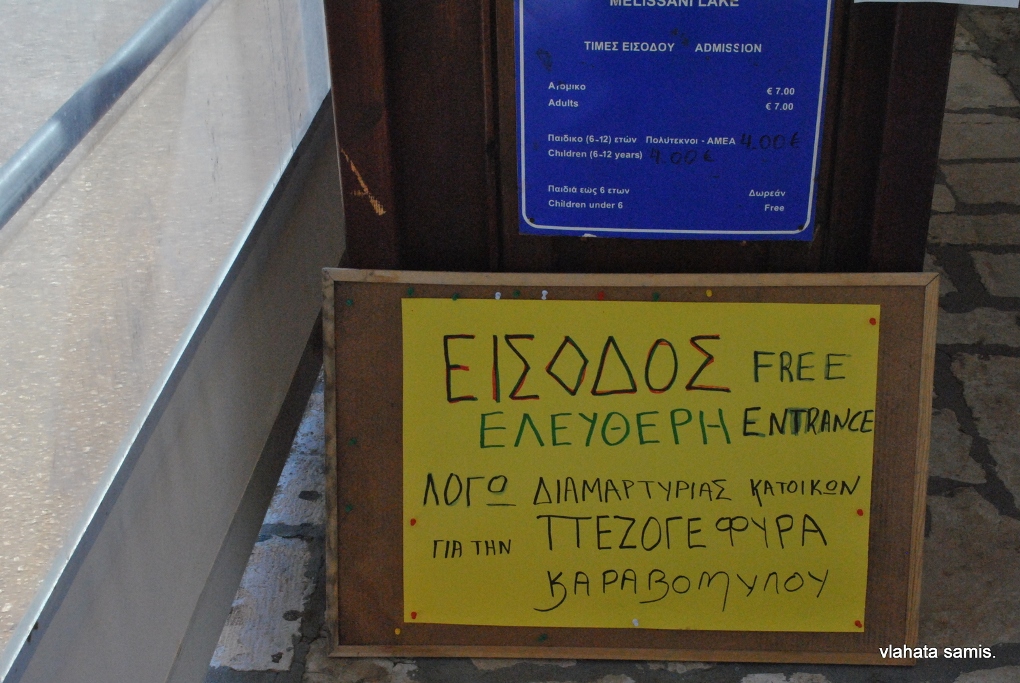 MELISSANI LAKE
ΤΙΜΕΣ ΕΙΣΟΔΟΥ ADMISSION
Ατομικο € 7.00
Adults € 7.00
Παιδικο (6-12) ετών Πολύτεκνοι - ΑΜΕΑ 4.00 €
Children (6-12 years) 4.00 €
Παιδιά εώς 6 ετων Δωρεάν
Children under 6 Free
ΕΙΣΟΔΟΣ FREE
ΕΛΕΥΘΕΡΗ ENTRANCE
ΛΟΓΩ ΔΙΑΜΑΡΤΥΡΙΑΣ ΚΑΤΟΙΚΩΝ
ΓΙΑ ΤΗΝ ΠΕΖΟΓΕΦΥΡΑ
ΚΑΡΑΒΟΜΥΛΟΥ
vlahata samis.